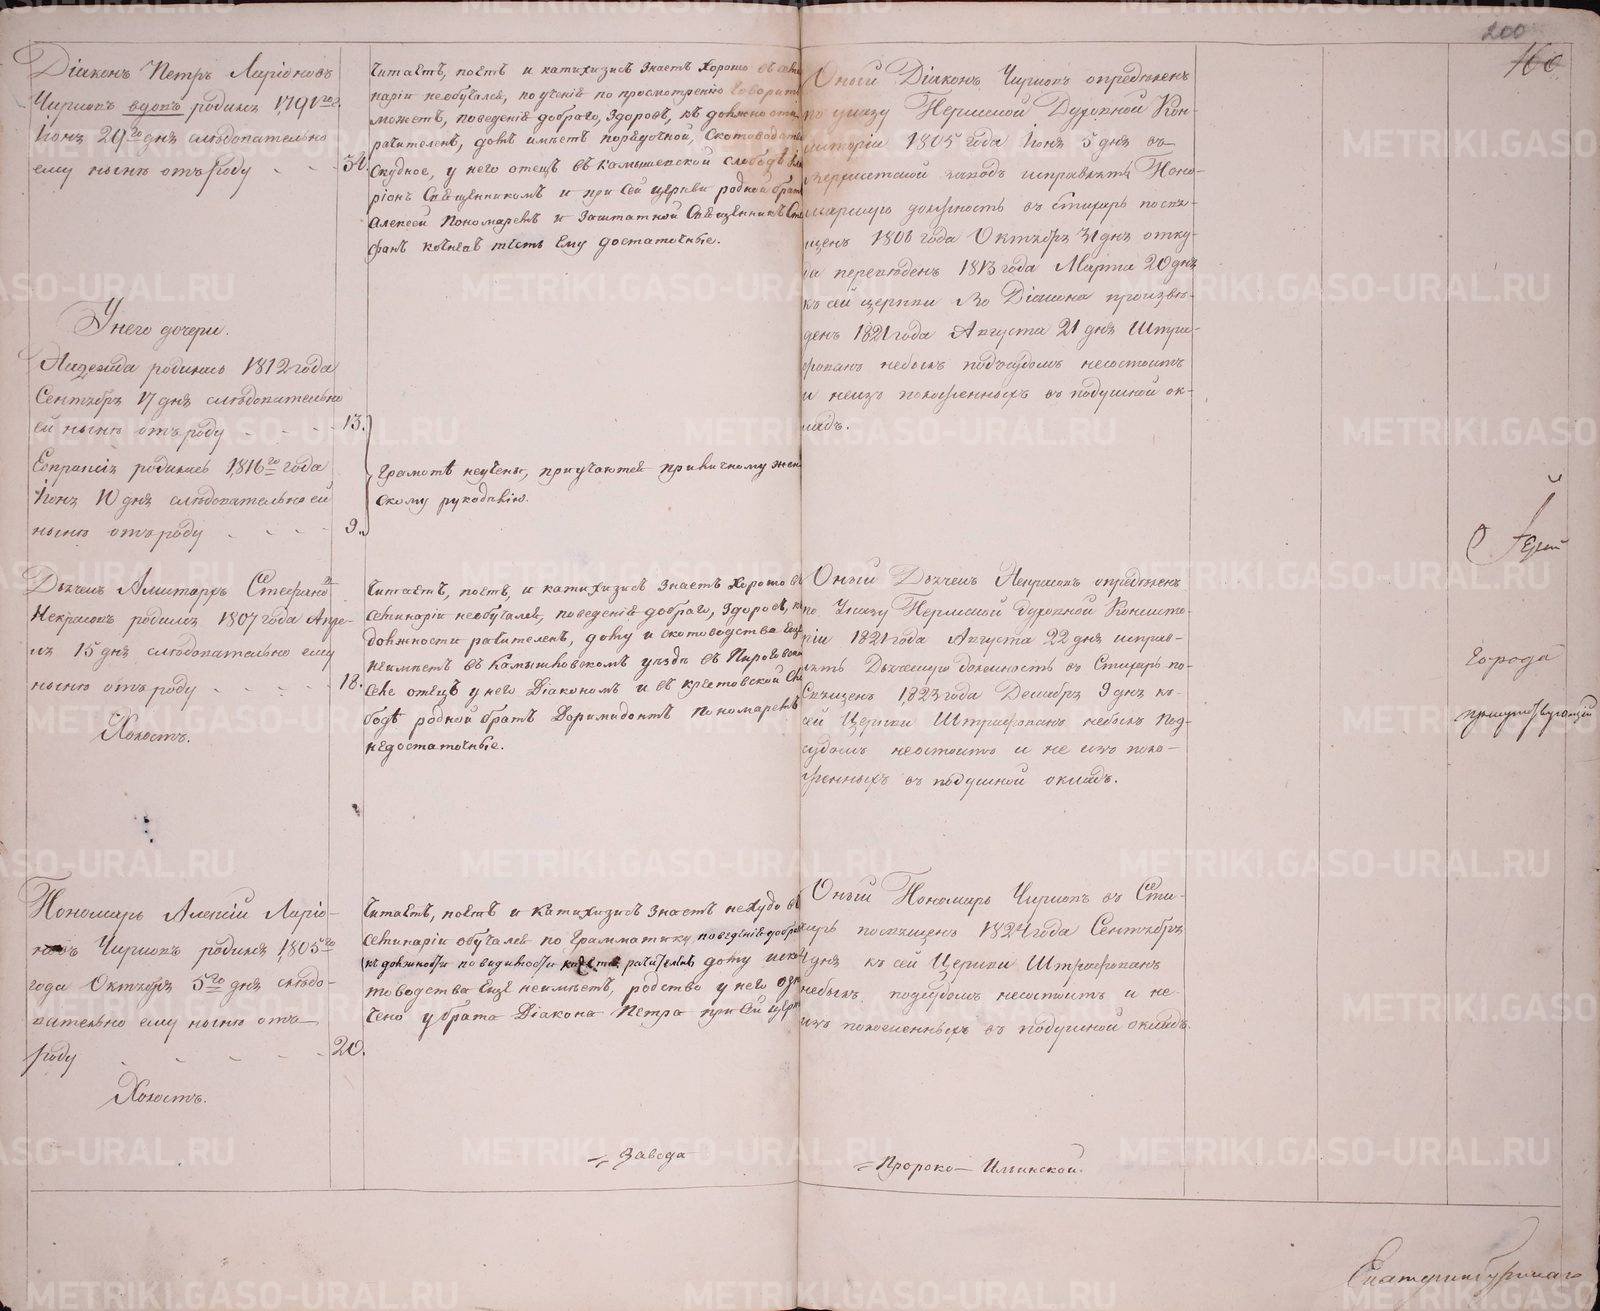 200
160
Діаконъ Петръ Ларіоновъ
Чирковъ вдовъ родился 1791го
Іюня 29го дня слѣдовательно
ему нынѣ отъ роду - - 34.
У него дочери.
Надежда родилась 1812 года
Сентября 17 дня слѣдовательно
ей нынѣ отъ роду - - - 13.
Евпраксія родилась 1816го года
Іюня 10 дня слѣдовательно ей
нынѣ отъ роду - - - 9.
Дьячекъ Стефановъ
Некрасовъ родился 1807 года Апре-
ля 15 дня слѣдовательно ему
нынѣ отъ роду - - - 18.
Холостъ.
Пономарь Алексій Ларіо-
новъ Чирковъ родился 1805го
года Октября 5го дня слѣдо-
вательно ему нынѣ отъ
роду - - - - 20.
Холостъ.
Читаетъ, поетъ и катихизисъ знаетъ хорошо въ семи
наріи необучался, поученіе по просмотренію говорить
можетъ, поведенія добраго, здоровъ, къ должности
рачителенъ, домъ имѣетъ порядочной, скотоводство
скудное, у него отецъ въ Камышевской слободѣ Ла
ріонъ Священникомъ и при сей церкви родной братъ
Алексей Пономаремъ и Заштатной Священникъ Сте
фанъ ему достаточные.
Грамотѣ неучены, пріучаются приличному жен
скому рукодѣлію.
Читаетъ, поетъ, и катихизисъ знаетъ хорошо въ
семинаріи необучался, поведенія добраго, здоровъ, къ
должности рачителенъ, дому и скотоводства еще
неимѣетъ въ Камышловскомъ уѣздѣ въ
селе отецъ у него Діакономъ и въ Крестовской сло
бодѣ родной братъ Доримидонтъ Пономаремъ
недостаточные.
Читаетъ, поетъ и Катихизисъ знаетъ нехудо въ
семинаріи обучался по Грамматику поведенія добраго
къ должности повидимости рачителенъ дому и ско
товодства еще неимѣетъ, родство у него озна
чено у брата Діакона Петра при сей церкви
Завода
Оный Діаконъ Чирковъ опредѣленъ
по указу Пермской Духовной Кон-
систоріи 1805 года Іюня 5 дня въ
заводъ исправлять Поно-
марскую должность въ стихарь посвя-
щенъ 1806 года Октября 31 дня отку-
да переведенъ 1813 года Марта 20 дня
къ сей церкви Во Діакона произве-
денъ 1821 года Августа 21 дня Штра-
фованъ небылъ подъ судомъ несостоитъ
и неизъ положенныхъ въ подушной ок-
ладъ.
Оный Дьячекъ Некрасовъ опредѣленъ
по Указу Пермской духовной Консисто-
ріи 1821 года Августа 22 дня исправ-
лять Дьяческую должность въ Стихарь по-
священъ 1823 года Декабря 9 дня къ
сей Церкви Штрафованъ небылъ под-
судомъ несостоитъ и не изъ поло-
женныхъ въ подушной окладъ.
Оный Пономарь Чирковъ въ Сти-
харь посвященъ 1824 года Сентября
дня къ сей Церкви Штрафованъ
небылъ подсудомъ несостоитъ и не
изъ положенныхъ въ подушной окладъ.
Пророко-Ильинской.
Города
присутствующій
Екатеринбургскаго